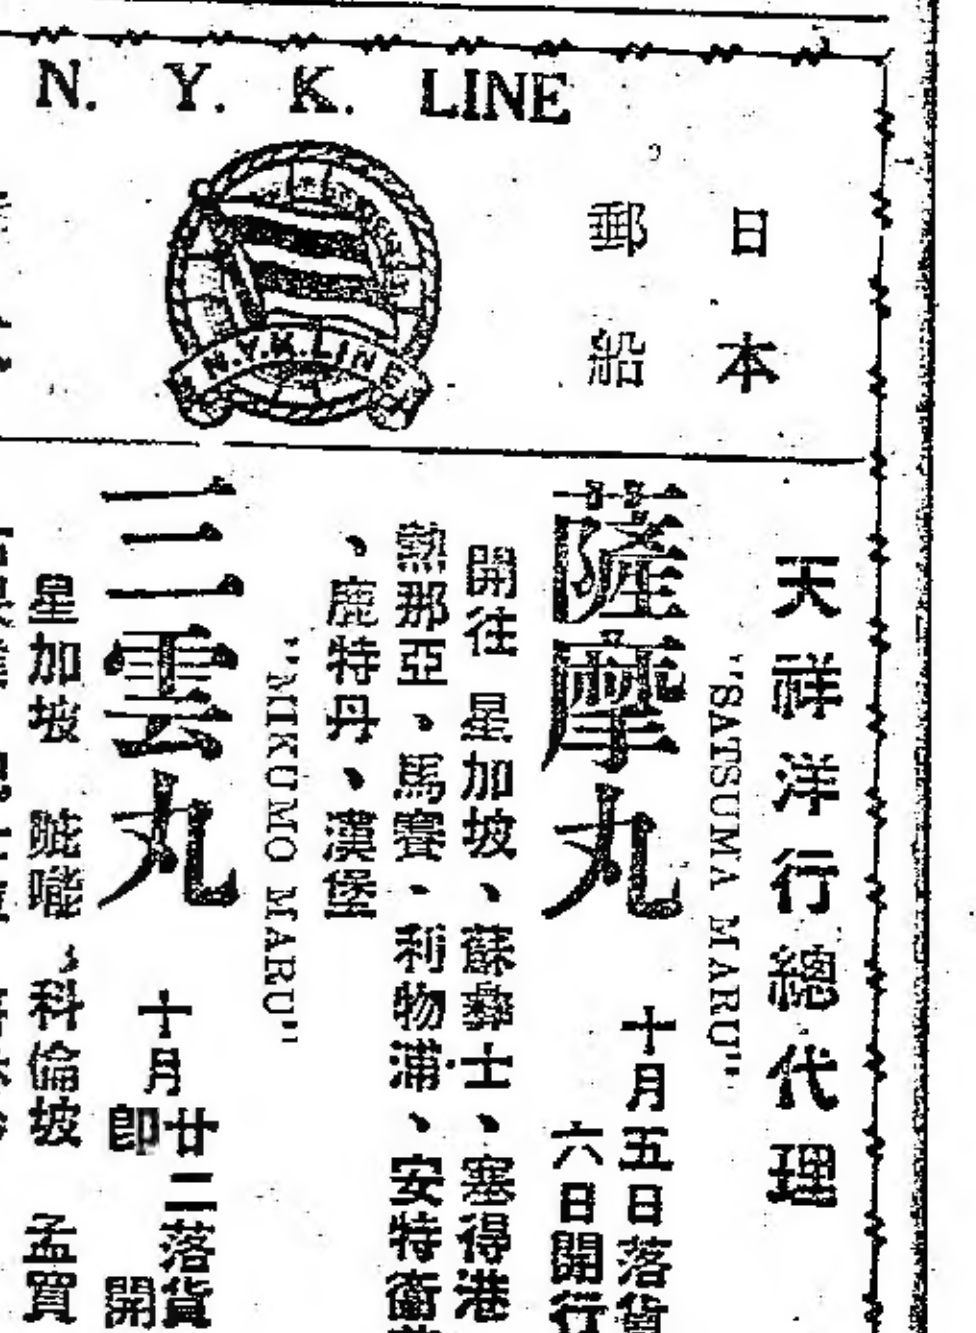 N. Y. K. LINE
日本
郵船
N.Y.K.LINE
天祥洋行總代理
"SATSUMA MARU"
薩摩丸
十月五日落貨
六日開行
開往 星加坡、蘇彝士、塞得港
熱那亞、馬賽、利物浦、安特衞
、鹿特丹、漢堡
"MIKUMO MARU"
三雲丸
十月廿二落貨
即 開
星加坡 科倫坡 孟買